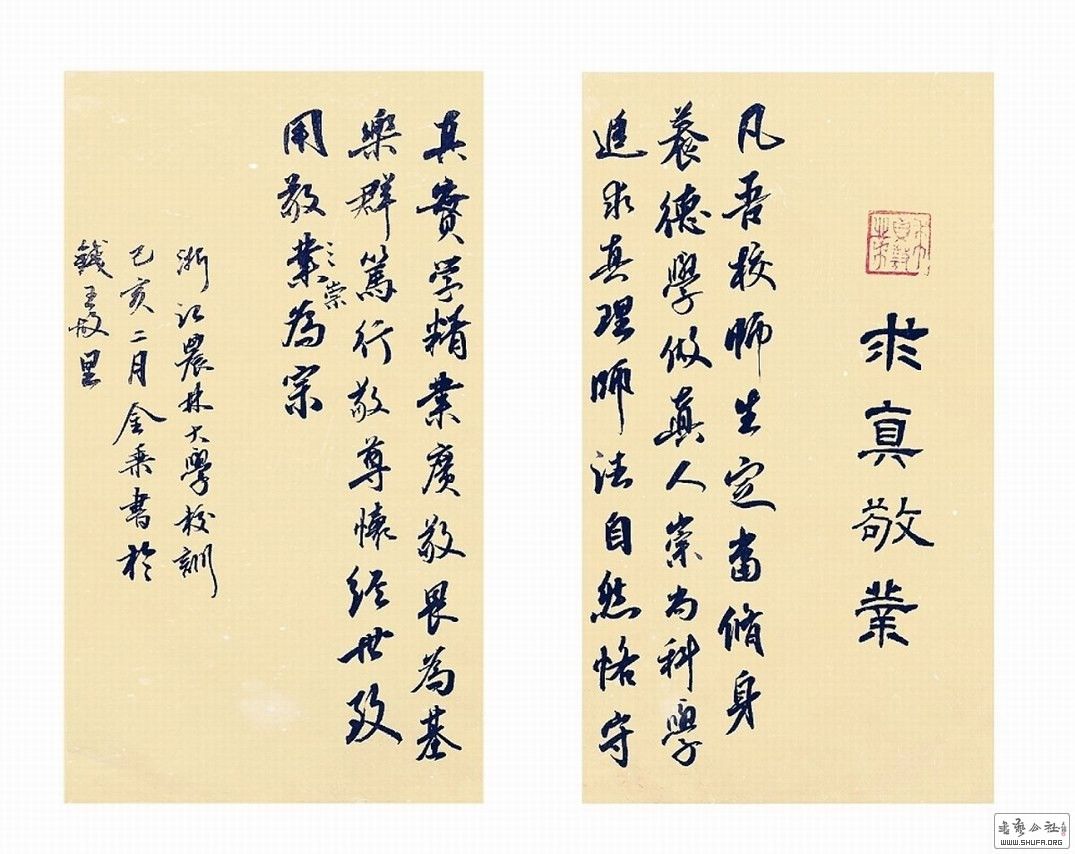 求真敬業
凡吾校師生定當脩身
養德學做真人崇尚科學
追求真理師法自然恪守
真實学精業廣敬畏為基
樂群篤行敬尊懷經世致
用敬業崇為宗
浙江農林大學校訓
己亥二月金乘書於
錢王故里
書藝公社
WWW.SHUFA.ORG